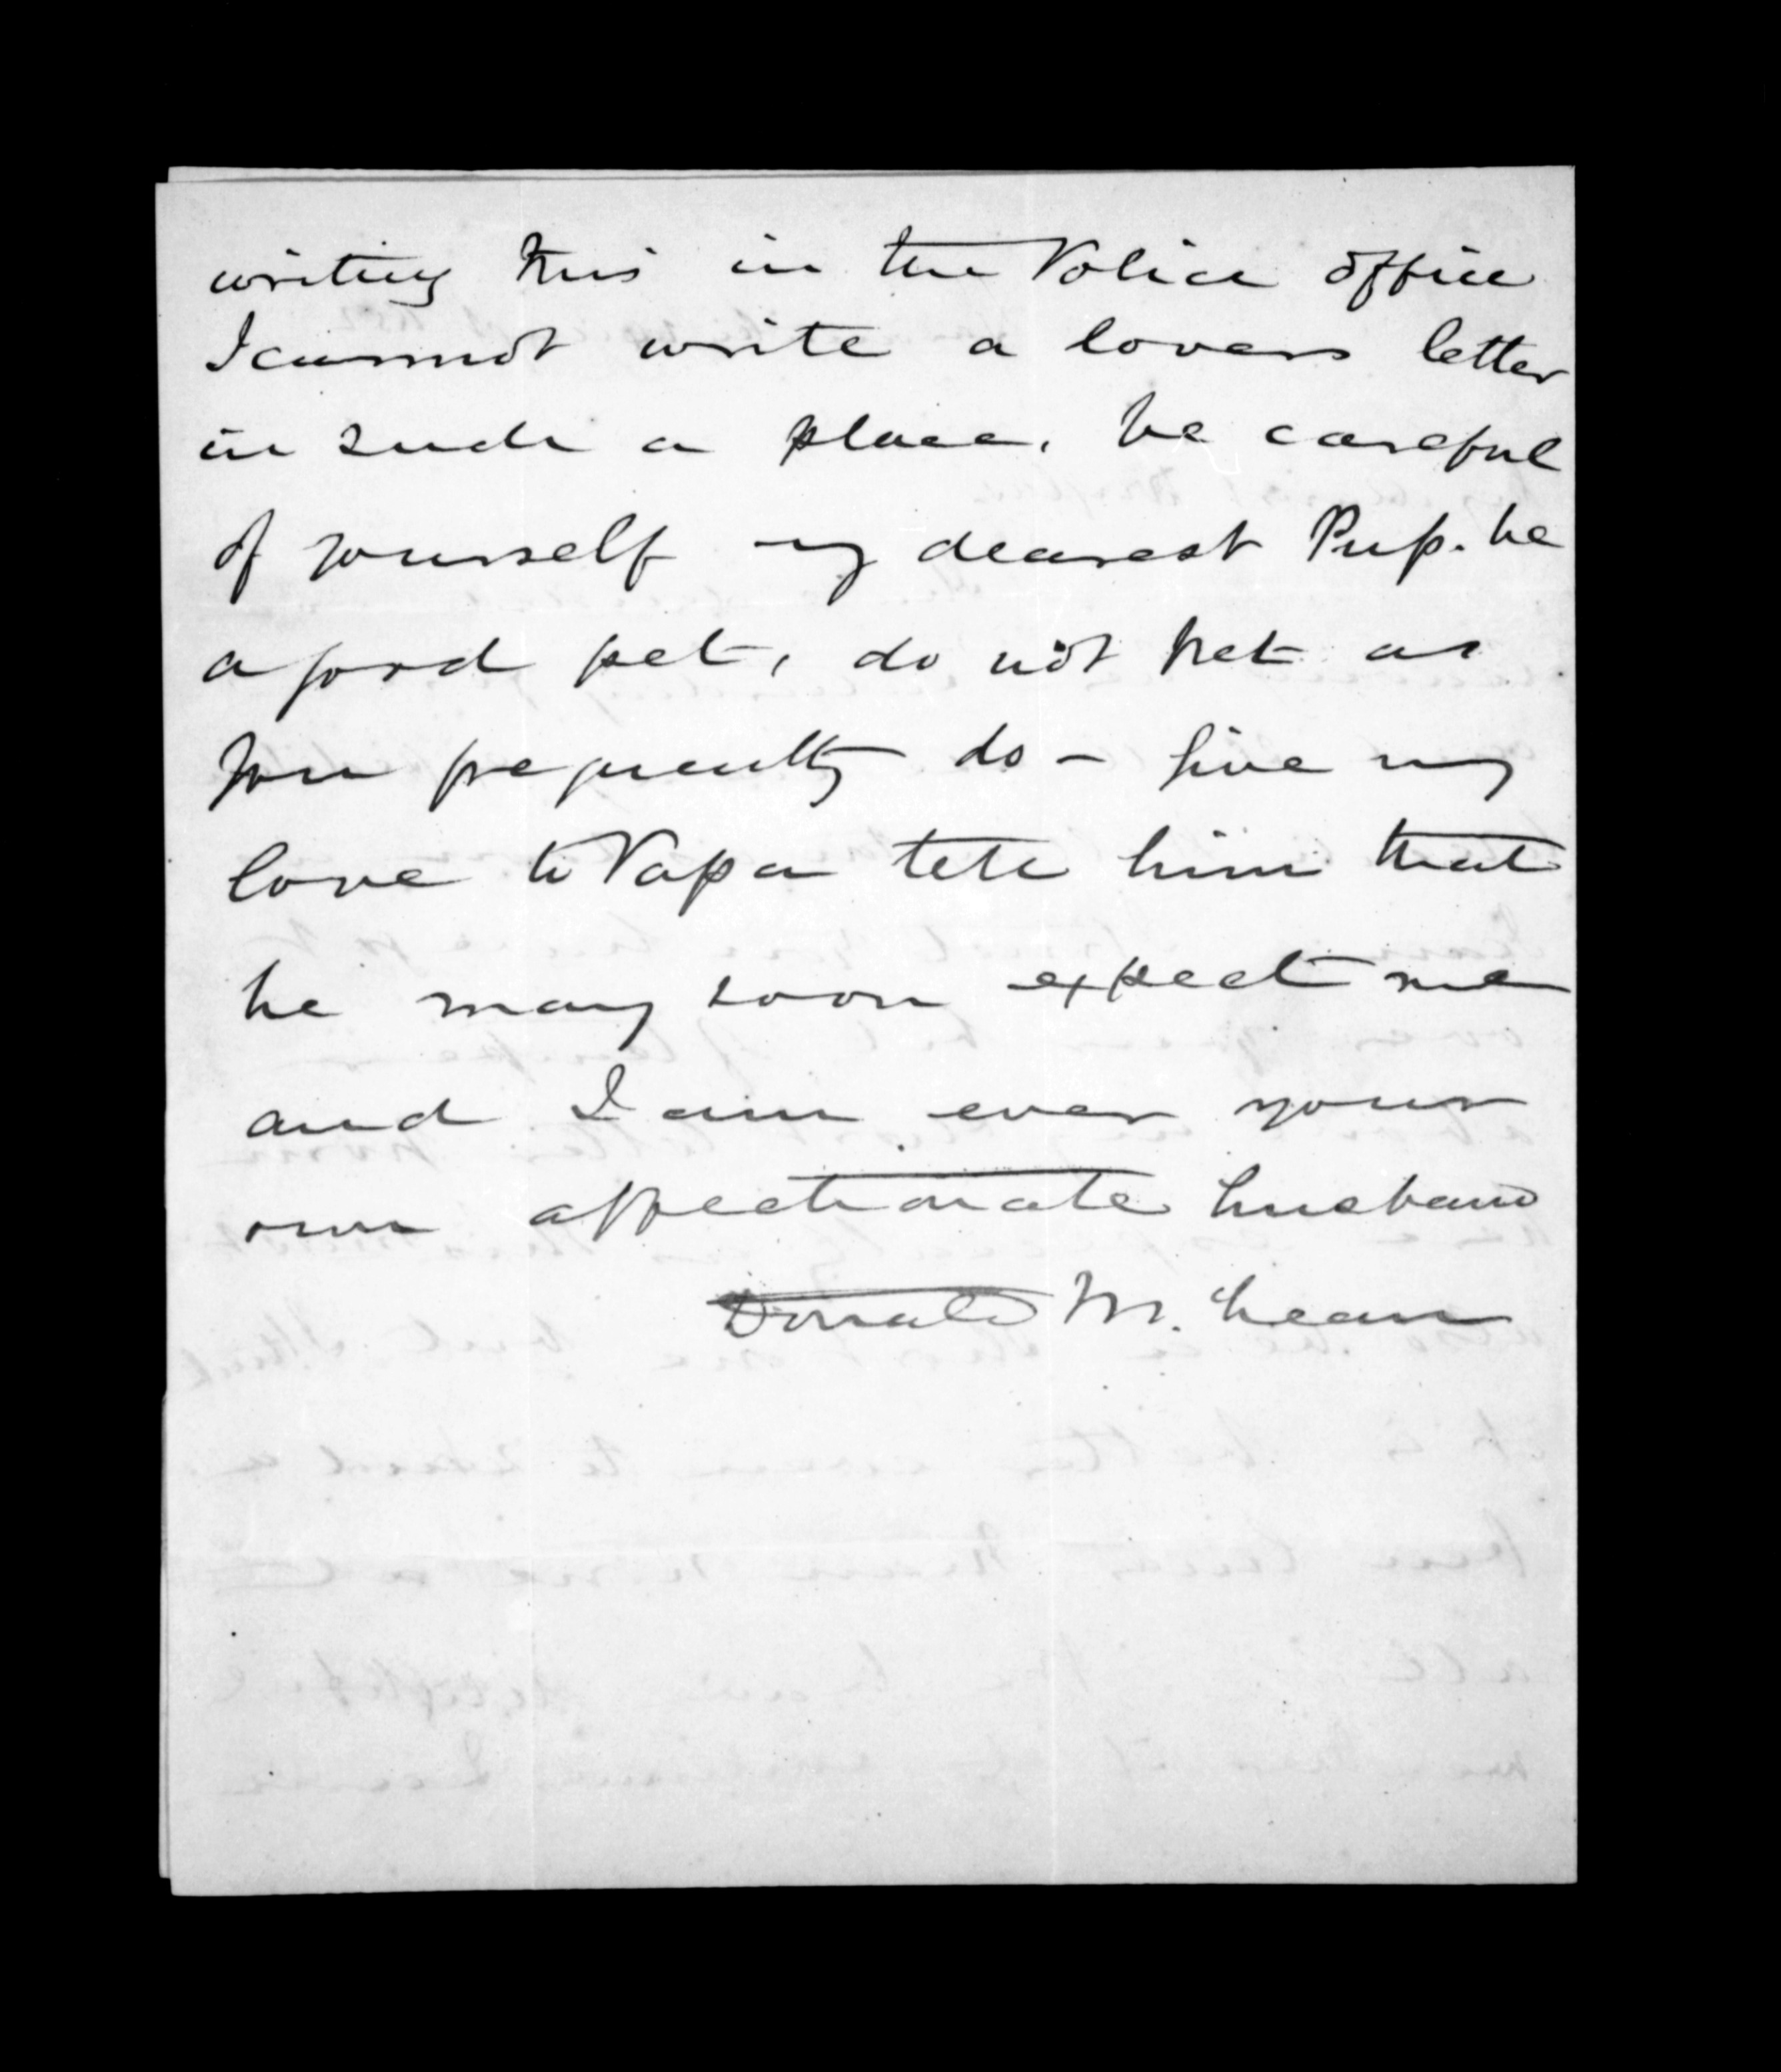 writing this in the Police office
I cannot write a lovers letter
in such a place, be careful
of yourself my dearest Pup. be
a good pet, do not fret as
you frequently do - Give my
love to Papa tell him that
he may soon expect me
and I am ever your
own affectionate husband
Donald McLean